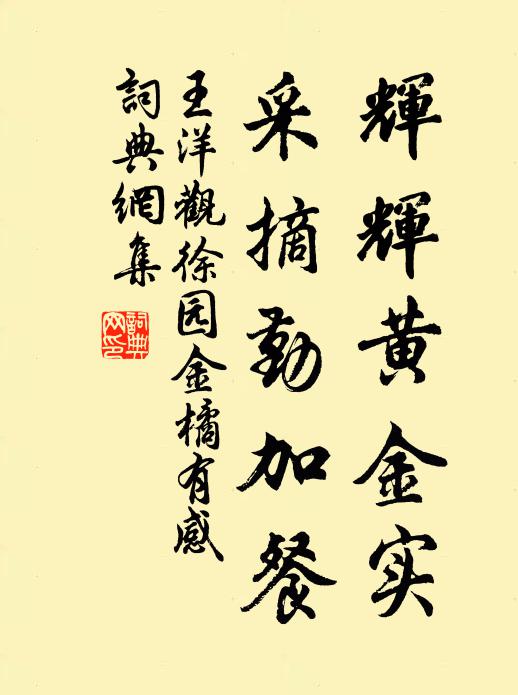 輝輝黄金实
采摘勤加餐
王洋觀徐园金橘有感
詞典網集
詞典網印